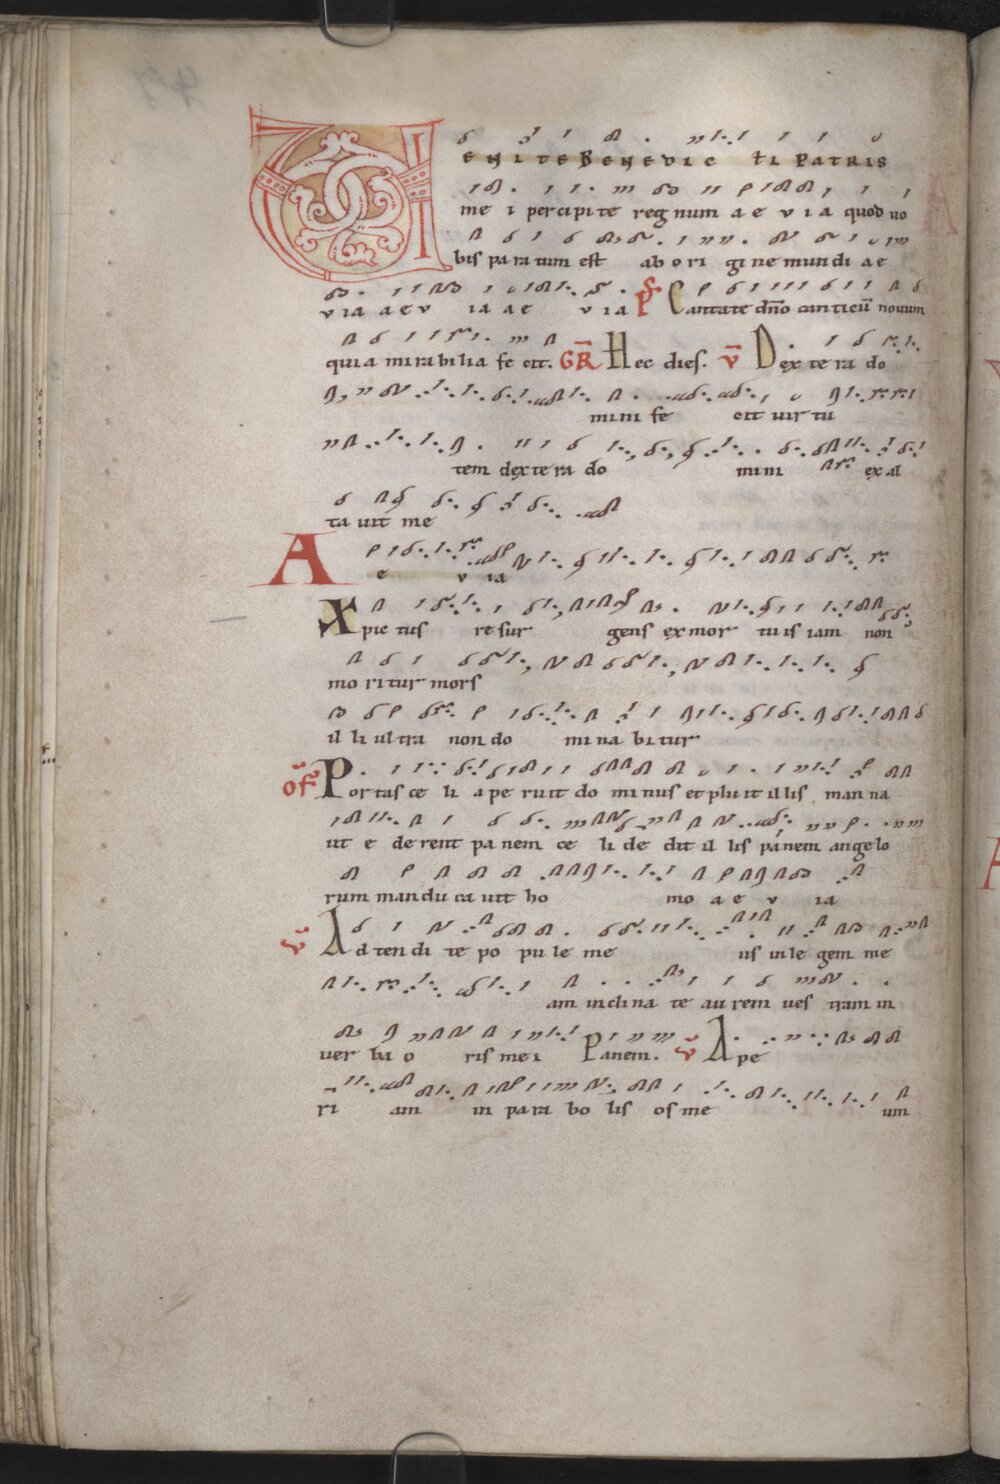 VENITE BENEDIC TI PATRIS
me i percipite reg num a e v i a quod uo
bis pa ra tum est ab o ri gi ne mun di a e
v i a a e v ia a e v i a Ps Cantate dño canticū nouum
quia mirabilia fe cit. GR Hec dies. V Dextera do
mini fe cit uir tu
tem dextera do mini exal
ta uit me
A e v ia
Xpic tus re sur gens ex mor tu is iam non
mo ri tur mors
il li ul tra non do mi na bi tur
Of Portas ce li a pe ruit do mi nus et plu it il lis man na
ut e de rent pa nem ce li de dit il lis panem angelo
rum man du ca uit ho mo a e v ia
V Ad ten di te po pu le me us in le gem me
am inclina te au rem ues tram in
uer ba o ris me i Panem. V Ape
ri am in para bo lis os me um